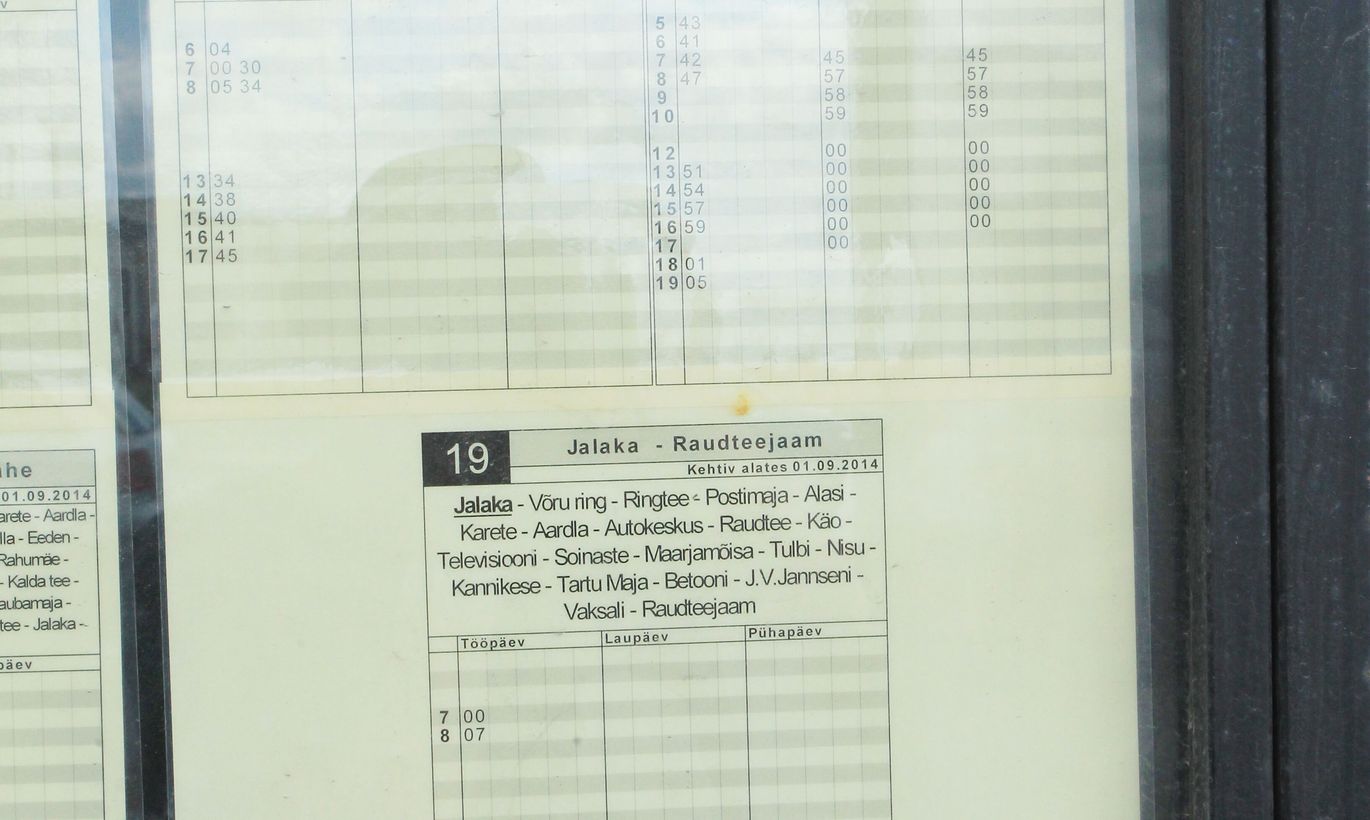 v
6 04
7 00 30
8 05 34
13 34
14 38
15 40
16 41
17 45
5 43
6 41
7 42 45 45
8 47 57 57
9 58 58
10 59 59
12 00 00
13 51 00 00
14 54 00 00
15 57 00 00
16 59 00 00
17 00
18 01
19 05
he
01.09.2014
arete - Aardla -
lla - Eeden -
Rahumäe -
- Kalda tee -
aubamaja -
tee - Jalaka -
päev
19 Jalaka - Raudteejaam
Kehtiv alates 01.09.2014
Jalaka - Võru ring - Ringtee - Postimaja - Alasi -
Karete - Aardla - Autokeskus - Raudtee - Käo -
Televisiooni - Soinaste - Maarjamõisa - Tulbi - Nisu -
Kannikese - Tartu Maja - Betooni - J.V.Jannseni -
Vaksali - Raudteejaam
Tööpäev Laupäev Pühapäev
7 00
8 07